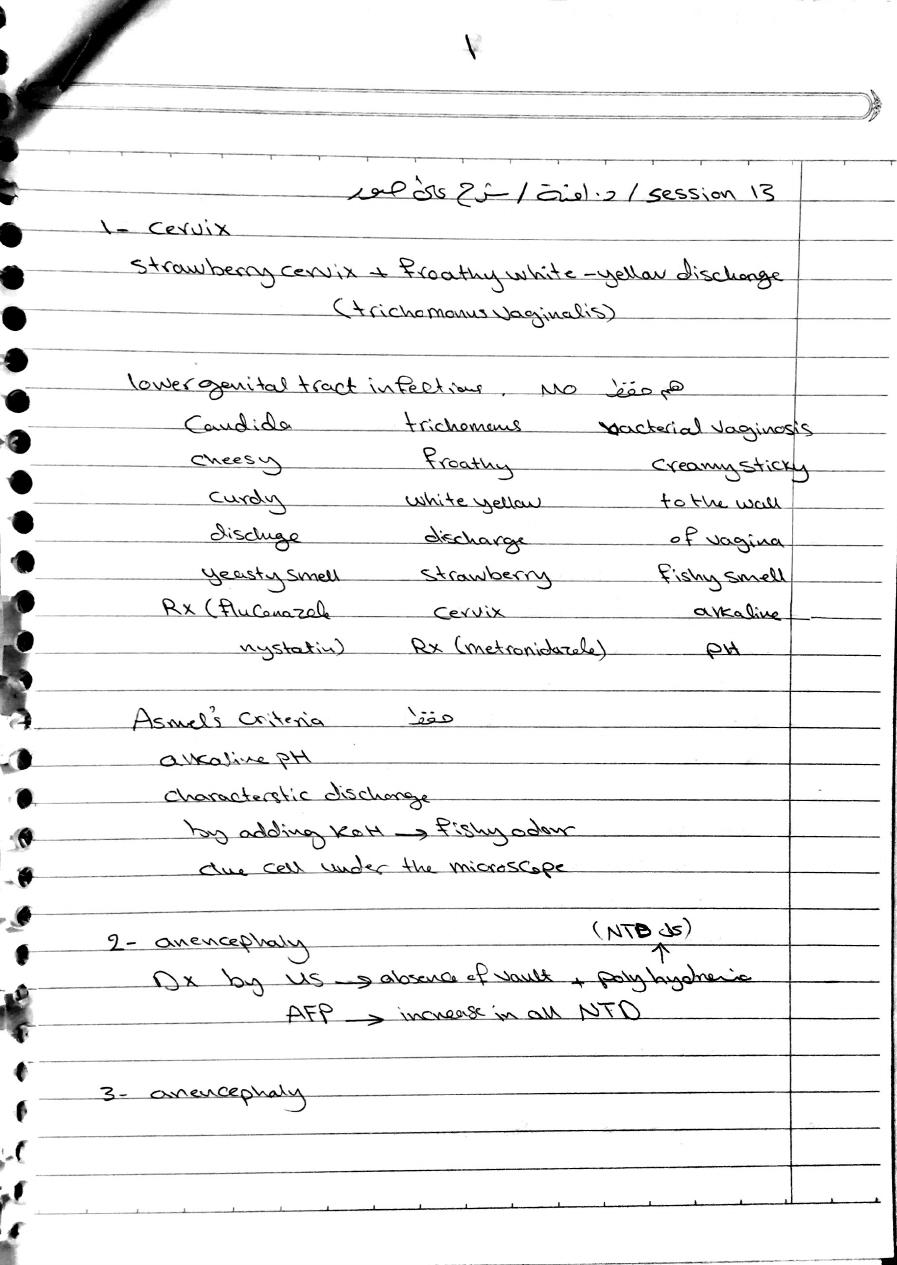 ١
session 13 / د. امنة / شرح صور
1- cervix
strawberry cervix + froathy white-yellow dischange
(trichomonus vaginalis)
lower genital tract infections. MO هم حفظ
Candida trichomonus bacterial vaginosis
cheesy froathy creamy sticky
curdy white yellow to the wall
dischuge discharge of vagina
yeasty smell strawberry fishy smell
Rx (fluconazole cervix alkaline
nystatin) Rx (metronidazole) PH
Asmel's Criteria حفظ
alkaline pH
characterstic dischange
by adding KOH → fishy odour
clue cell under the microscope
2- anencephaly (NTD كل)
↑
Dx by US → absence of vault + polyhydramnio
AFP → increase in all NTD
3- anencephaly